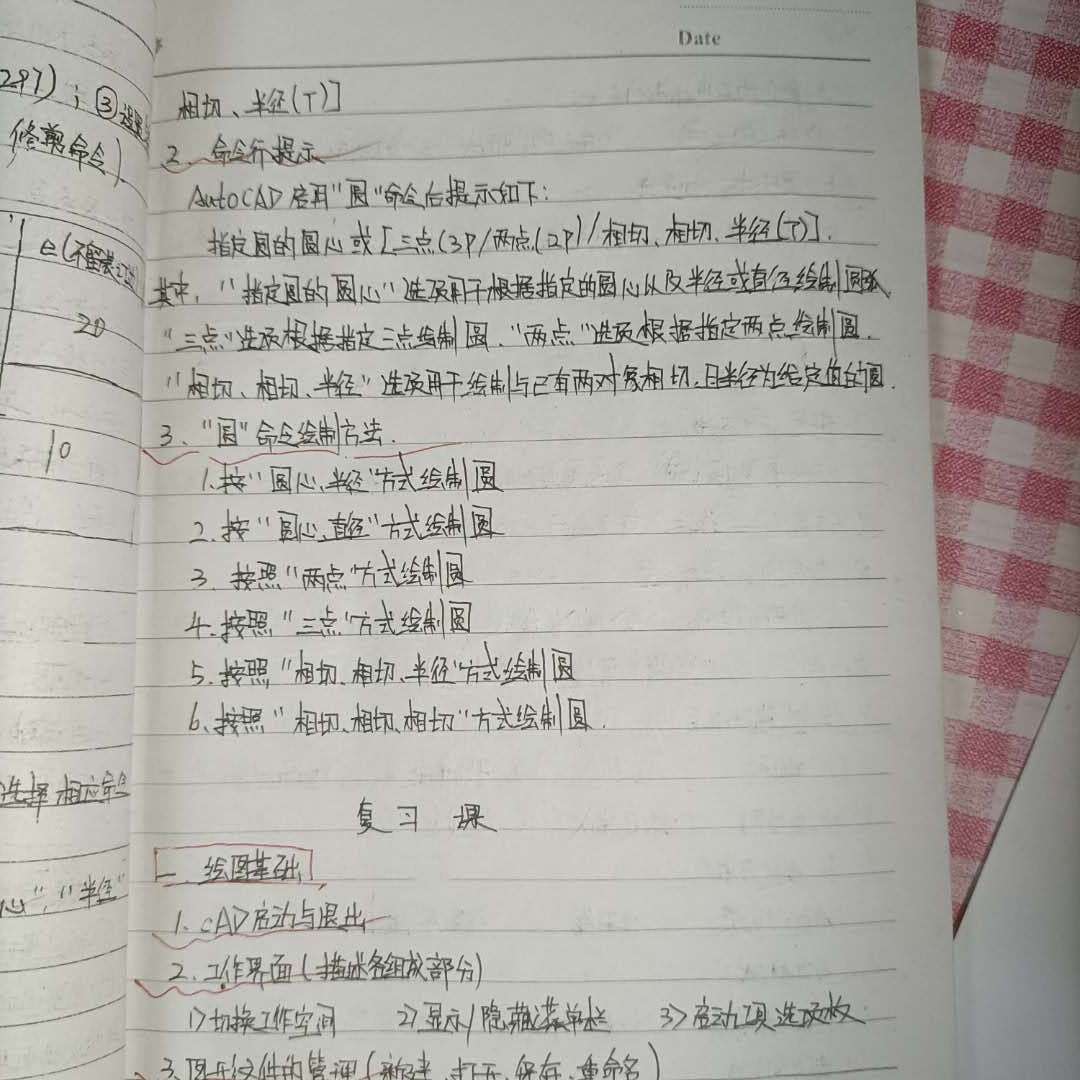 Date
297)；③设置
(修剪命令)
e(不留装订边)
20
10
选择相应命令
心"，"半径"
相切、半径(T)]
2、命令行提示
AutoCAD启用"圆"命令后提示如下：
指定圆的圆心或[三点(3P/两点(2P)/相切、相切、半径(T)].
其中，"指定圆的圆心"选项用于根据指定的圆心以及半径或直径绘制圆弧
"三点"选项根据指定三点绘制圆．"两点"选项根据指定两点绘制圆．
"相切、相切、半径"选项用于绘制与已有两对象相切．且半径为给定值的圆．
3、"圆"命令绘制方法．
1.按"圆心、半径"方式绘制圆
2.按"圆心、直径"方式绘制圆
3.按照"两点"方式绘制圆
4.按照"三点"方式绘制圆
5.按照"相切、相切、半径"方式绘制圆
6、按照"相切、相切、相切"方式绘制圆．
复习课
一、绘图基础
1、CAD启动与退出
2、工作界面(描述各组成部分)
1)切换工作空间 2)显示/隐藏菜单栏 3)启动工具选项板
3、图形文件的管理(新建、打开、保存、重命名)